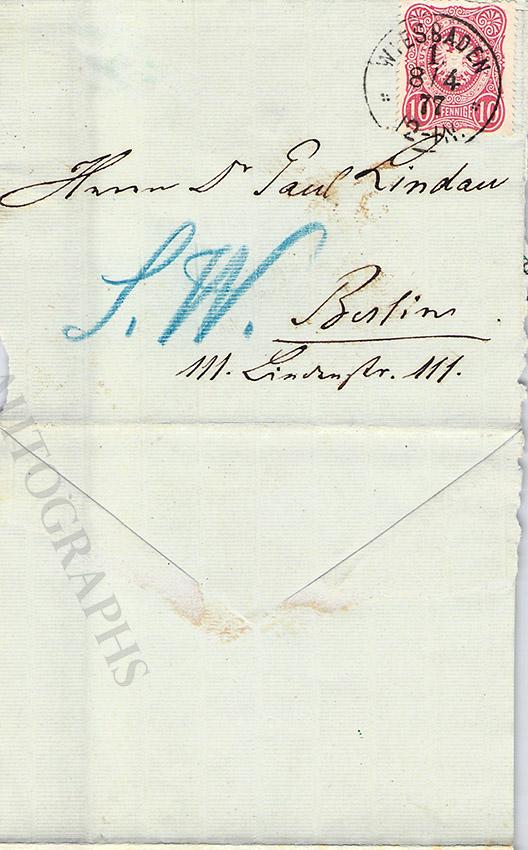 WIESBADEN
1.
8/4
77
12-1N.
10 PFENNIGE 10
Herrn Dr Paul Lindau
S. W. Berlin
111. Lindenstr. 111.
AUTOGRAPHS